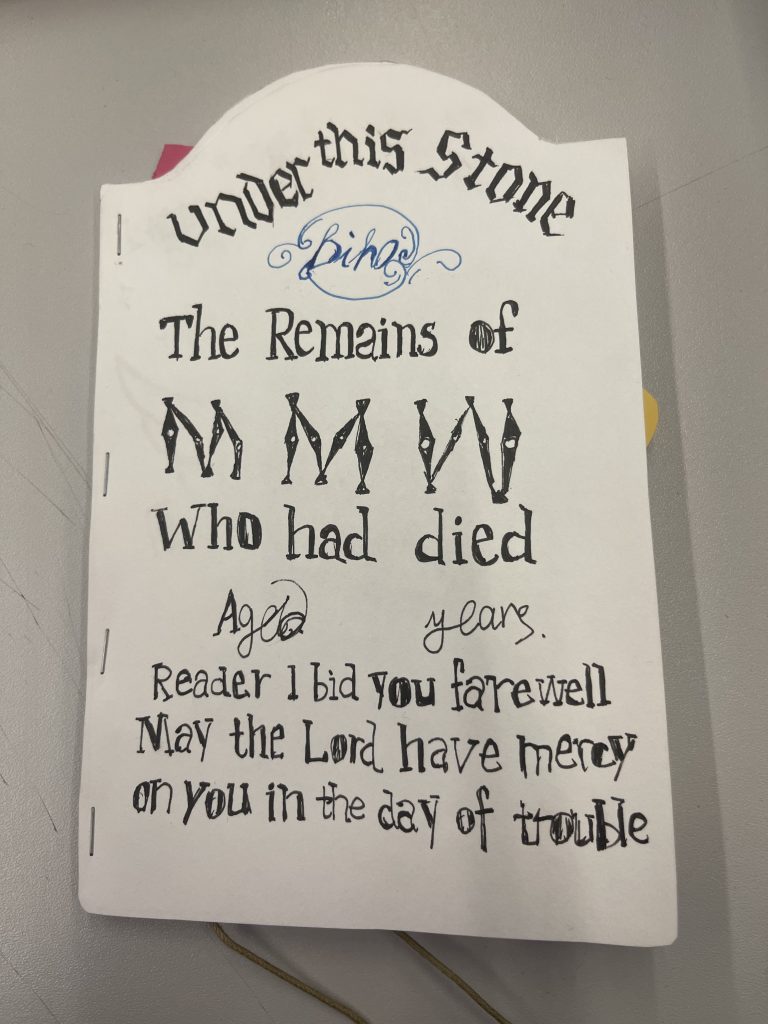 under this Stone
The Remains of
M M W
Who had died
Aged years.
Reader I bid you farewell
May the Lord have mercy
on you in the day of trouble